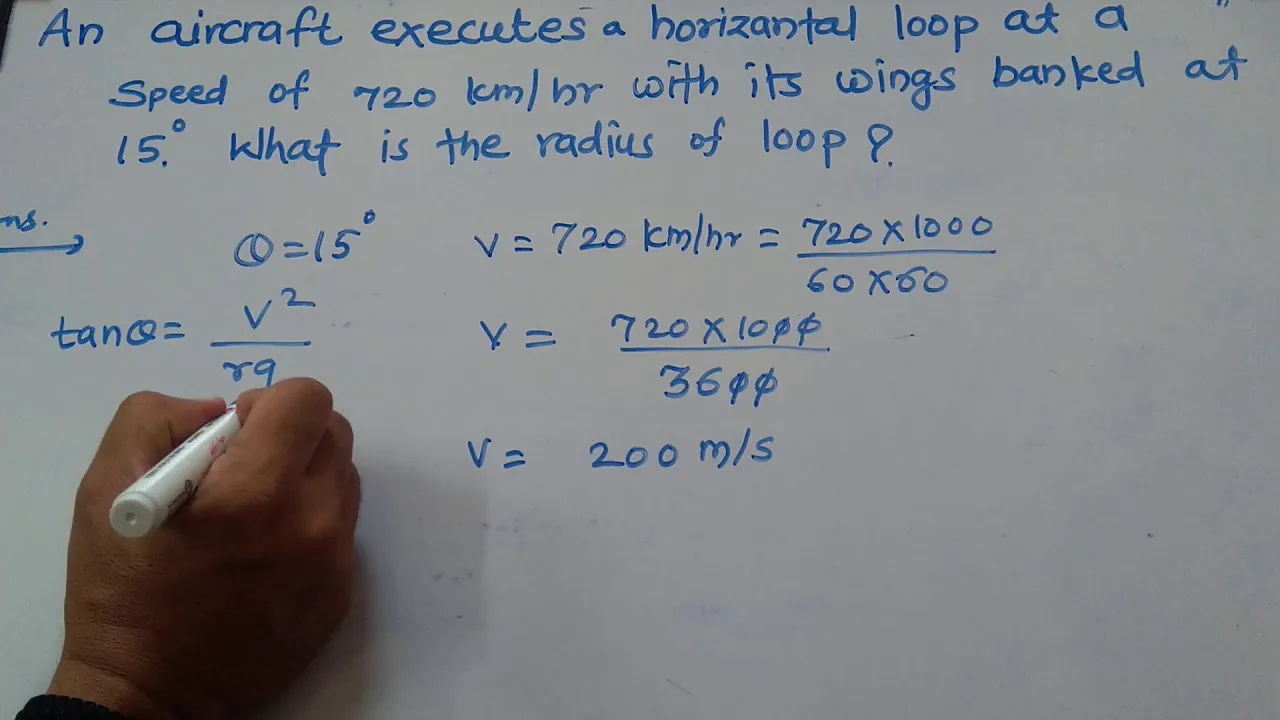 An aircraft executes a horizantal loop at a
Speed of 720 km/hr with its wings banked at
15°. What is the radius of loop?
ns.
θ = 15°
V = 720 km/hr = 720 X 1000 / 60 X 60
tanθ = V² / rg
V = 720 X 1000 / 3600
V = 200 m/s